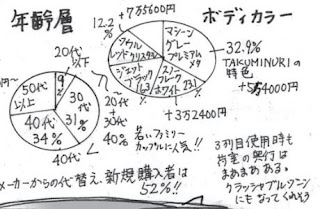 年齢層
ボディカラー
+7万5600円
12.2%
マシーン
グレー
プレミアム
メタ
ソウル
レッドクリスタル
ジェット
ブラック
スノーフレーク
ホワイト
32.9%
TAKUMINURIの
特色
+5万4000円
+3万2400円
20代
以下
9%
30代
31%
40代
34%
50代
以上
30代
40%
40代
若いファミリー
カップルに人気!!
メーカーからの代替え、新規購入者は
52%!!
3列目使用時も
荷室の奥行は
まあまあある。
クラッシャブルゾーン
にもなってくれそう